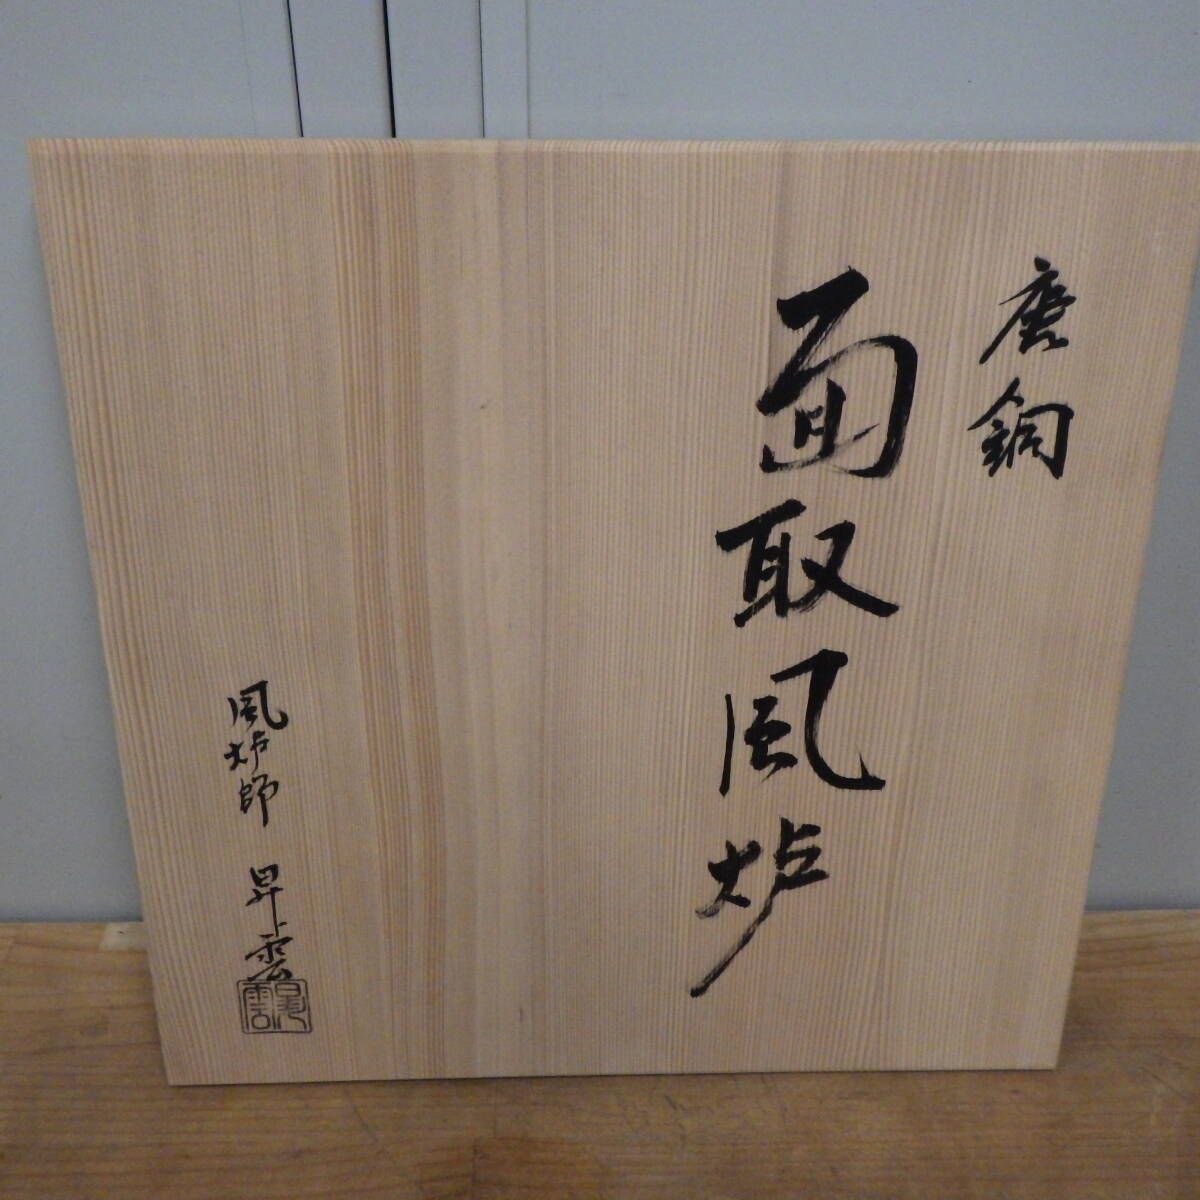 唐銅
面取風炉
風炉師 昇雲
昇雲